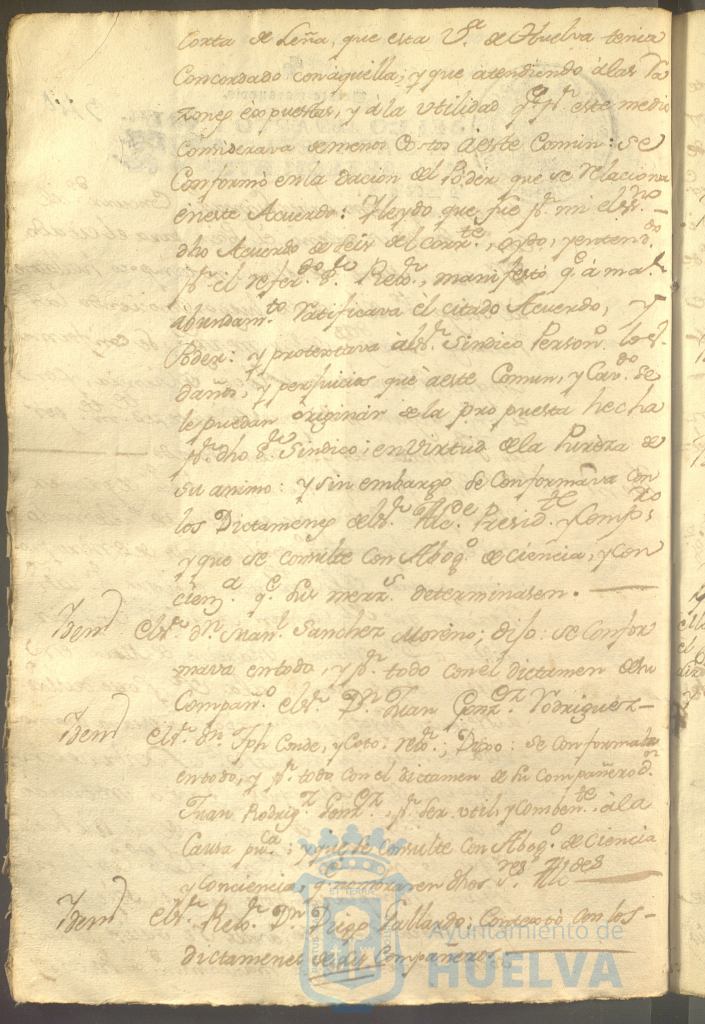 Corta de Leña, que esta V.ª de Huelva tenia
Concordado con aquella; y que atendiendo à las Ra
zones expuestas, y à la utilidad q.e p.r este medio
Considerava de menos Costos a este Comun: se
Conformò en la dacion del Poder que se relaciona
en este Acuerdo: Heydo que fue p.r mi el ess.no
dho Acuerdo de seis del corr.te, oydo, y entend.do
p.r el refer.do S.r Rex.r, manifestò q.e à ma.r
abundam.to ratificava el citado Acuerdo, y
Poder: y protextava àl S.r Sindico Person.o los
daños, y perjuicios que à este Comun, y Cav.do se
le puedan originar de la propuesta hecha
p.r dho S.r Sindico; en Virtud de la Pureza de
su animo: y sin embargo se Conformava con
los Dictamenes del S.r Alc.de Presid.te y Comp.ro
y que se consulte con Abog.o de ciencia, y con
cien.a q.e sus merz.s determinasen.
Idem el S.r D.n Juan Sanchez Moreno; dijo: se Confor
mava en todo, y p.r todo con el dictamen de su
Compañ.o el S.r D.n Juan Gonz.ez Rodriguez
Idem el S.r D.n Jph Conde, y Coto, rex.r; Dixo: se Conformava
en todo, y p.r todo con el dictamen de su Compañero D.n
Juan Rodrig.z Gonz.ez, p.r ser util, y Comben.te à la
Causa pu.ca; y que se Consulte con Abog.o de Ciencia
y Conciencia, q nombraren dhos S.res Alc.des
Idem el S.r Rex.r D.n Diego Gallardo; Contextò con los
dictamenes de sus Compañeros.
Ayuntamiento de
HUELVA